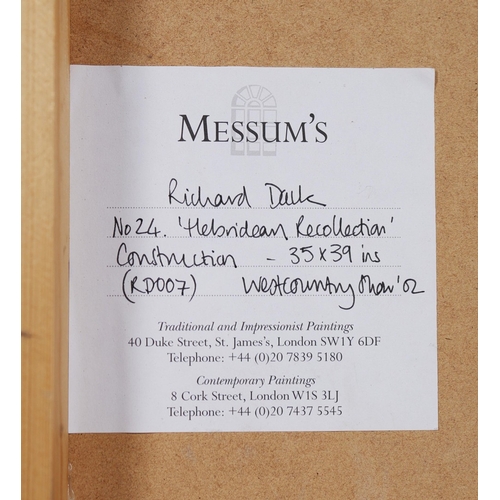 MESSUM'S
Richard Dack
No 24. 'Hebridean Recollection'
Construction - 35 x 39 ins
(RD007) Westcountry Show '02
Traditional and Impressionist Paintings
40 Duke Street, St. James's, London SW1Y 6DF
Telephone: +44 (0)20 7839 5180
Contemporary Paintings
8 Cork Street, London W1S 3LJ
Telephone: +44 (0)20 7437 5545